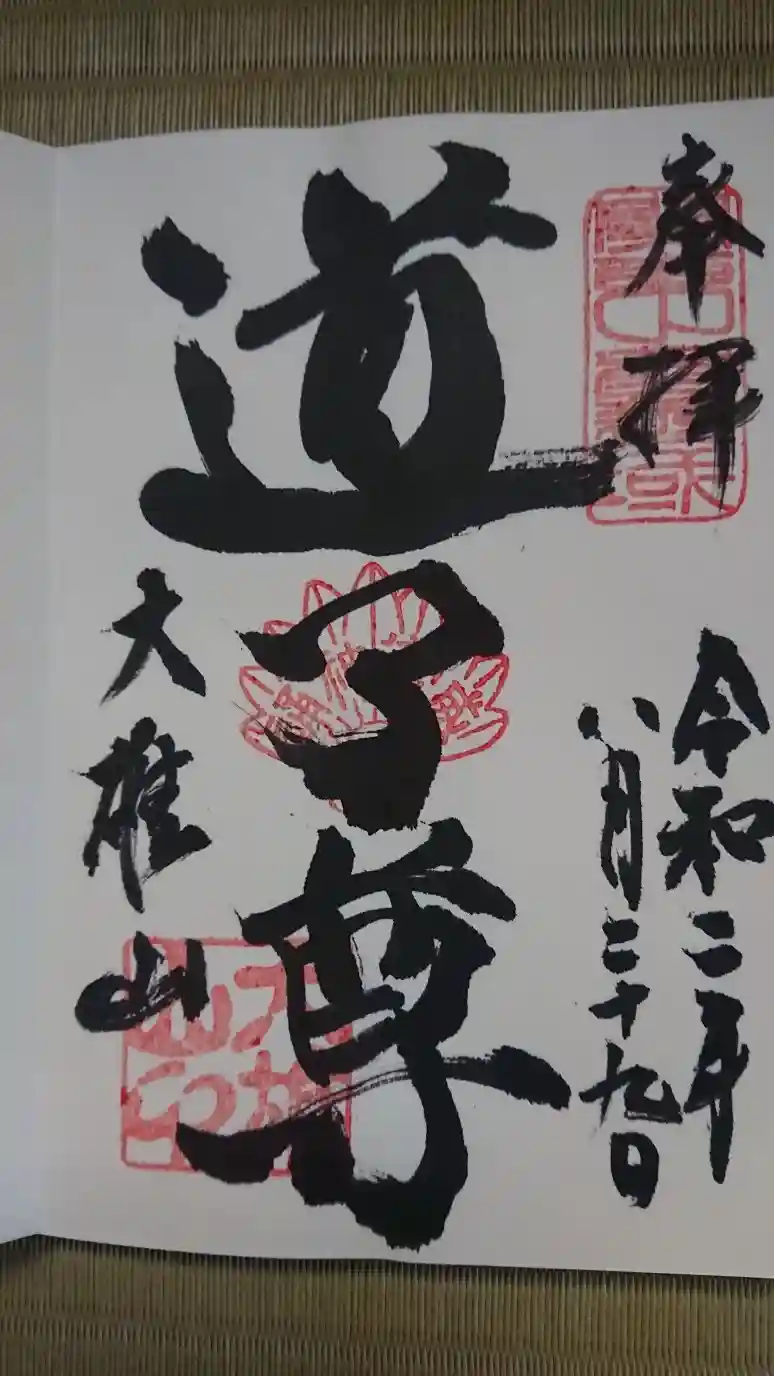 奉拝
令和二年
八月二十九日
道了尊
大雄山